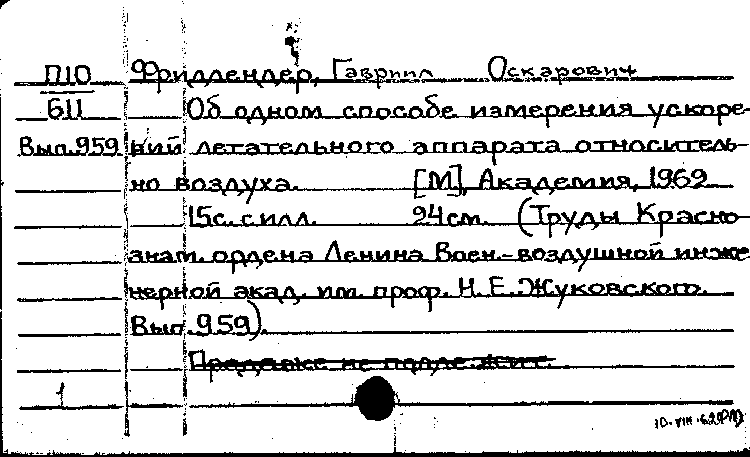 П10 Фридлендер, Гавриил Оскарович
611 Об одном способе измерения ускоре-
Вып.959 ний летательного аппарата относитель-
но воздуха. [М], Академия, 1969
15с. с илл. 24см. (Труды Красно-
знам. ордена Ленина Воен.-воздушной инже-
нерной акад. им. проф. Н. Е. Жуковского.
Вып. 959).
Продаже не подлежит.
1